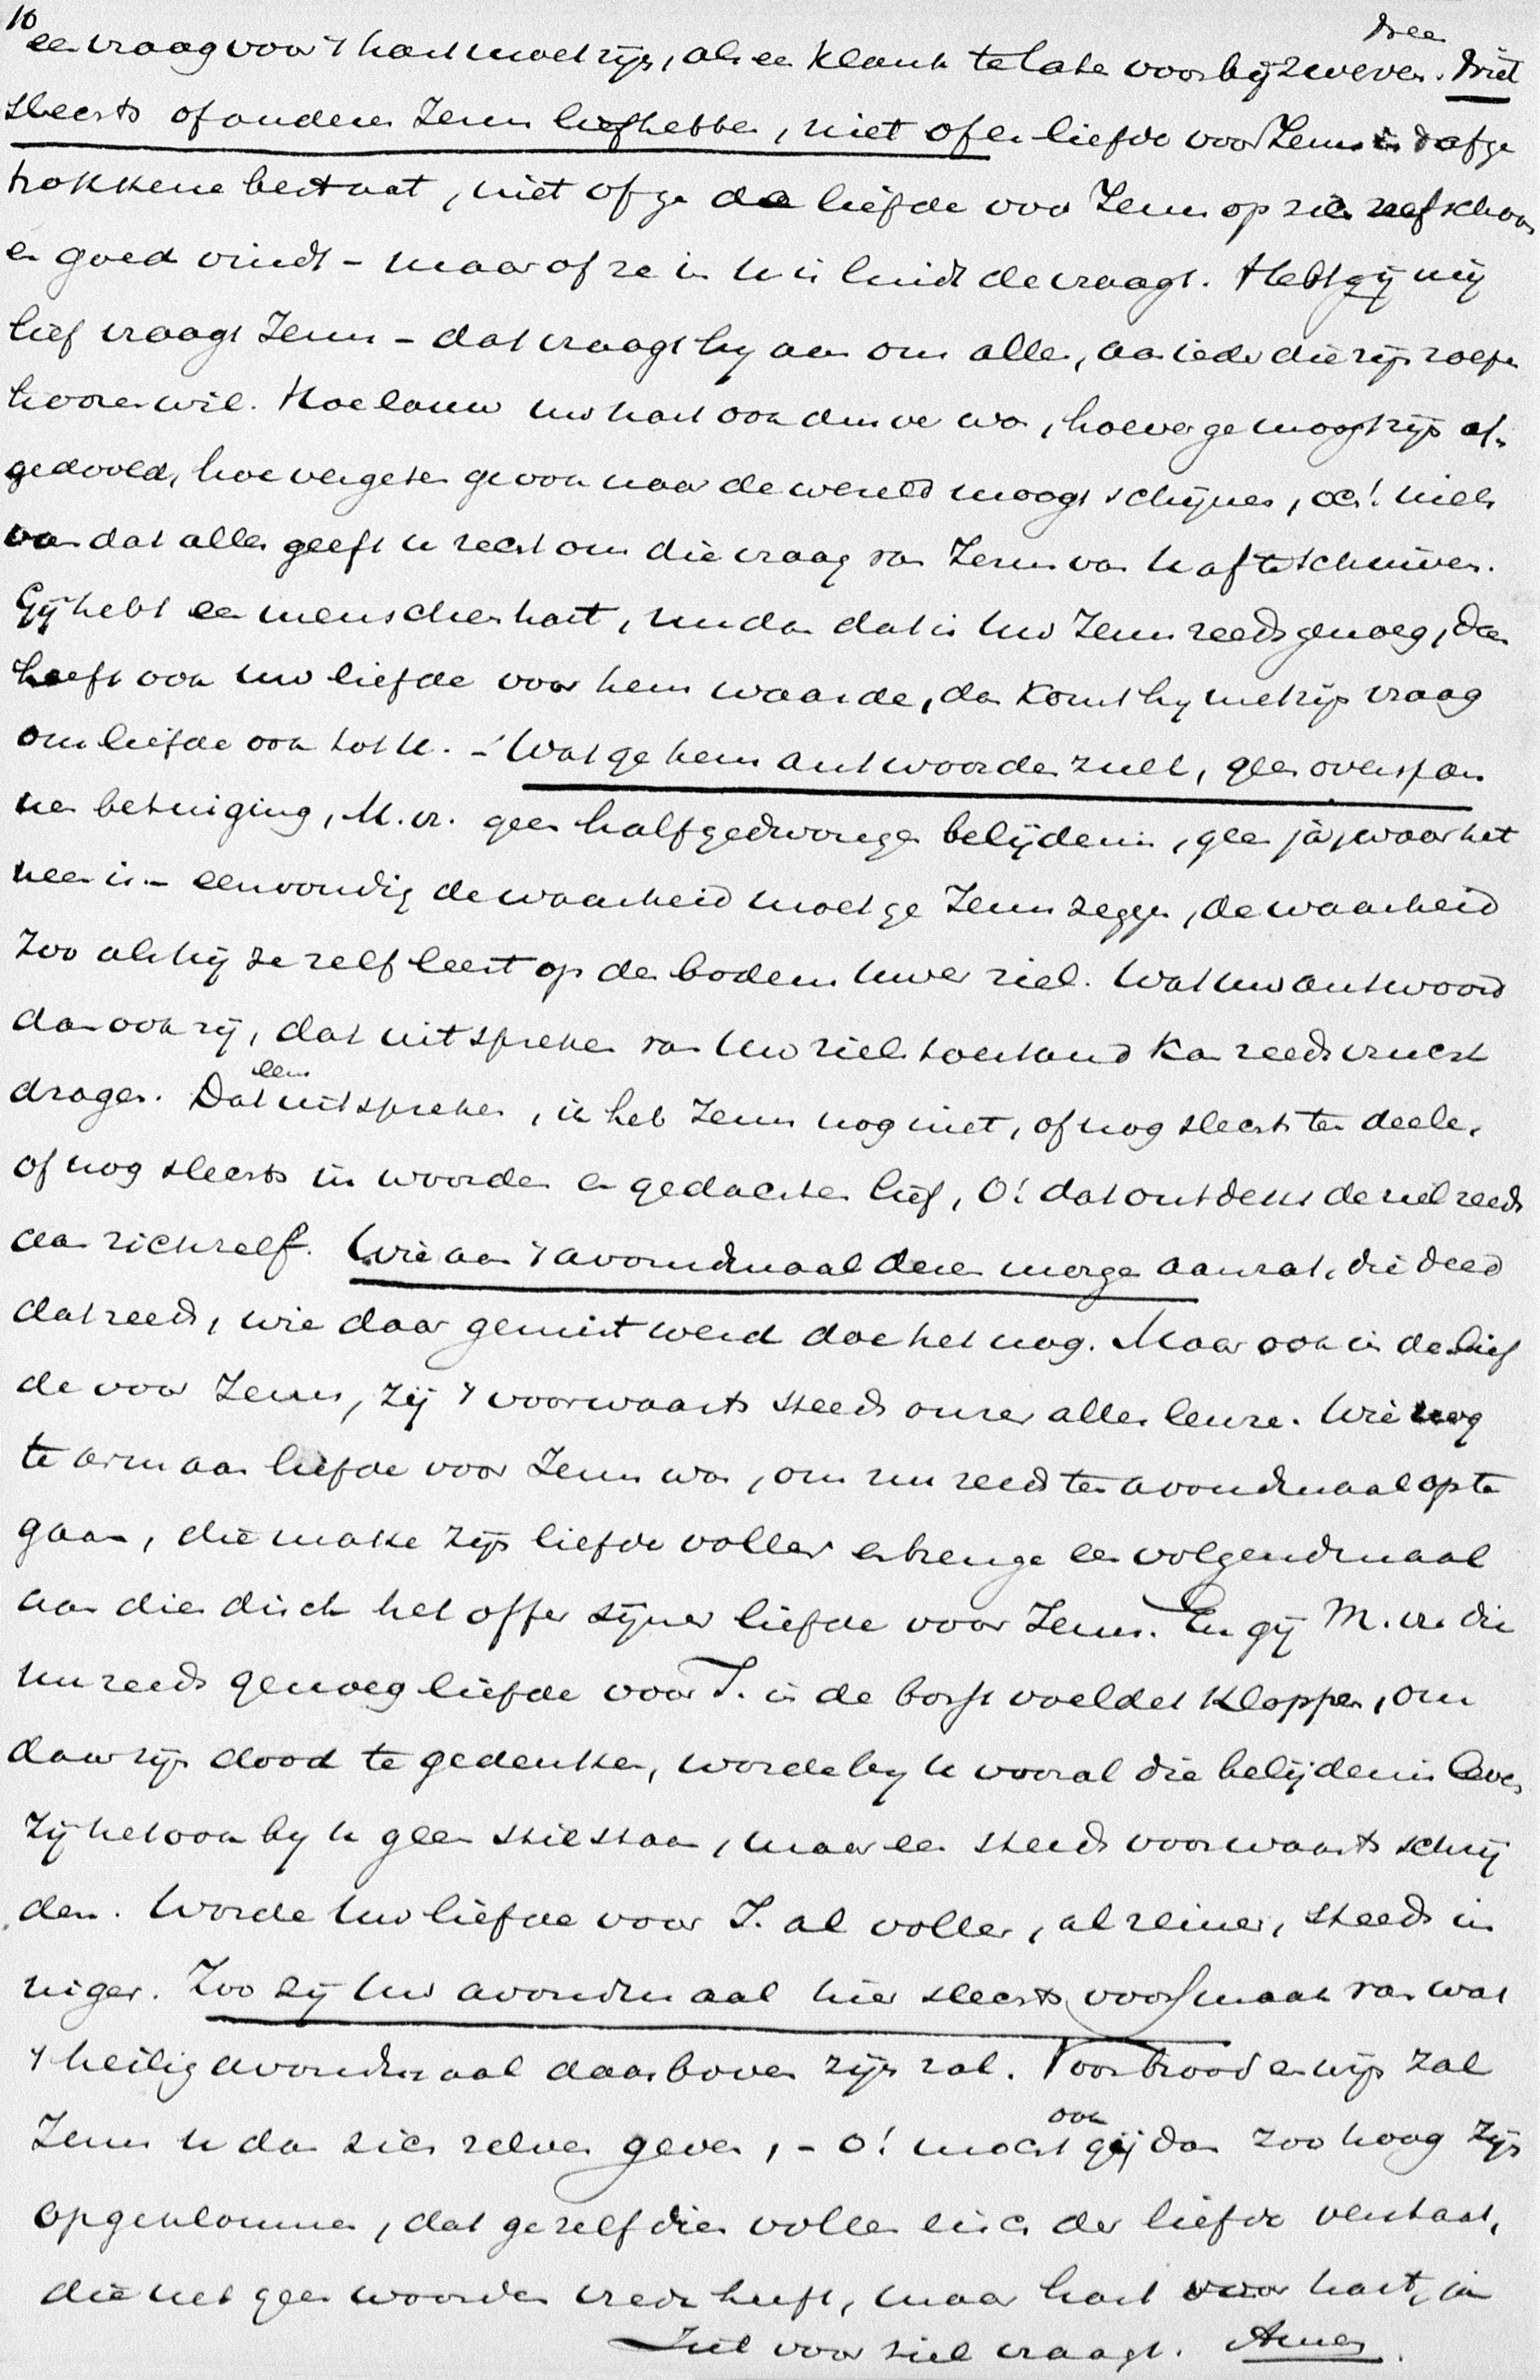 10
een vraag voor 't hart moet zijn, als een klank te laten voorbij zweven. Nee Niet
slechts of anderen Jezus liefhebben, niet of er liefde voor Jezus in 't afge
trokkene bestaat, niet of ge de liefde voor Jezus op zich zelf schoon
en goed vindt – maar of ze in U is luidt de vraag. Hebt gij mij
lief vraagt Jezus – dat vraagt hij aan ons allen, aan ieder die zijn roepen
hooren wil. Hoe lauw uw hart ook dusver was, hoever ge moogt zijn af-
gedoold, hoe vergeten ge ook naar de wereld moogt schijnen, och! niets
van dat alles geeft u recht om die vraag van Jezus van U af te schuiven.
Gij hebt een menschenhart, nu dan dat is Uw Jezus reeds genoeg, dan
heeft ook Uw liefde voor hem waarde, dan komt hij met zijn vraag
om liefde ook tot U. – Wat ge hem antwoorden zult, geen overspan
nen betuiging, M. vr. geen halfgedwongen belijdenis, geen ja, waar het
neen is – eenvoudig de waarheid moet ge Jezus zeggen, de waarheid
zoo als hij ze zelf leest op den bodem Uwer ziel. Wat Uw antwoord
dan ook zij, dat uitspreken van Uw zielstoestand kan reeds vrucht
dragen. Dat een uitspreken, ik heb Jezus nog niet, of nog slechts ten deele,
of nog slechts in woorden en gedachten lief, O! dat ontdekt de ziel reeds
aan zichzelf. Wie aan 't avondmaal dezen morgen aanzat, die deed
dat reeds, wie daar gemist werd doe het nog. Maar ook in de lief
de voor Jezus, zij 't voorwaarts steeds onzer aller leuze. Wie nog
te arm aan liefde voor Jezus was, om nu reeds ten avondmaal op te
gaan, die make zijn liefde voller en brenge een volgendmaal
aan dien disch het offer zijner liefde voor Jezus. En gij M. vr. die
nu reeds genoeg liefde voor J. in de borst voeldet kloppen, om
daar zijn dood te gedenken, worde bij U vooral die belijdenis leven
zij het ook bij U geen stilstaan, maar een steeds voorwaarts schrij
den. Worde Uw liefde voor J. al voller, al reiner, steeds in
niger. Zoo zij Uw avondmaal hier slechts voorsmaak van wat
't heilig avondmaal daarboven zijn zal. Voor brood en wijn zal
Jezus U dan zich zelven geven, – o! mocht ook gij dan zoo hoog zijn
opgeklommen, dat ge zelf dien vollen eisch der liefde verstaat,
die net geen woorden vrede heeft, maar hart voor hart, ja
Ziel voor ziel vraagt. Amen.